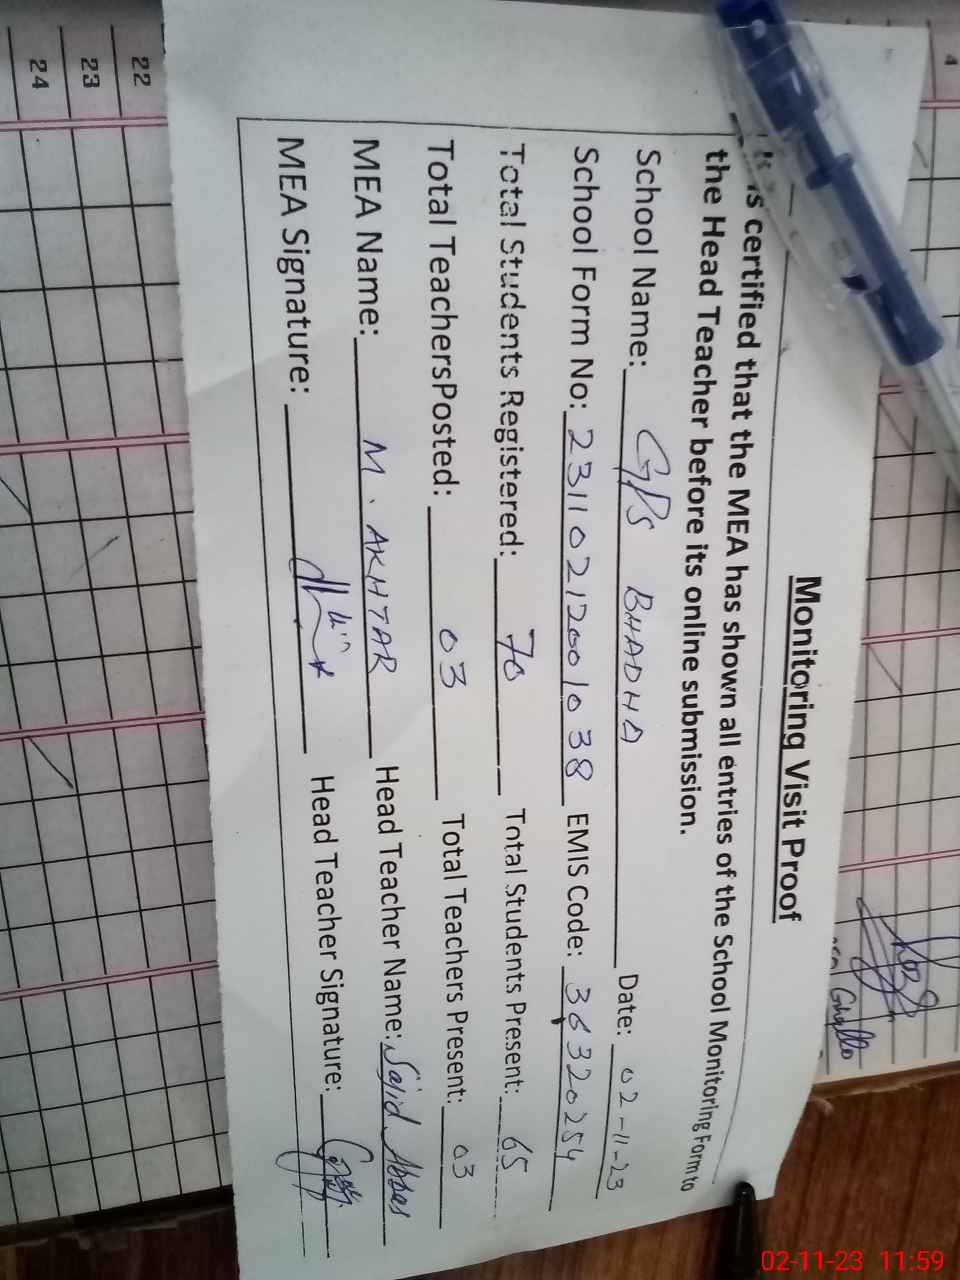 Monitoring Visit Proof
is certified that the MEA has shown all entries of the School Monitoring Form to
the Head Teacher before its online submission.
School Name: GPS BHADHA Date: 02-11-23
School Form No: 23110212001038 EMIS Code: 36320254
Total Students Registered: 70 Total Students Present: 65
Total TeachersPosted: 03 Total Teachers Present: 03
MEA Name: M. AKHTAR Head Teacher Name: Sajid Abbas
MEA Signature: Head Teacher Signature:
22
23
24
4
02-11-23 11:59